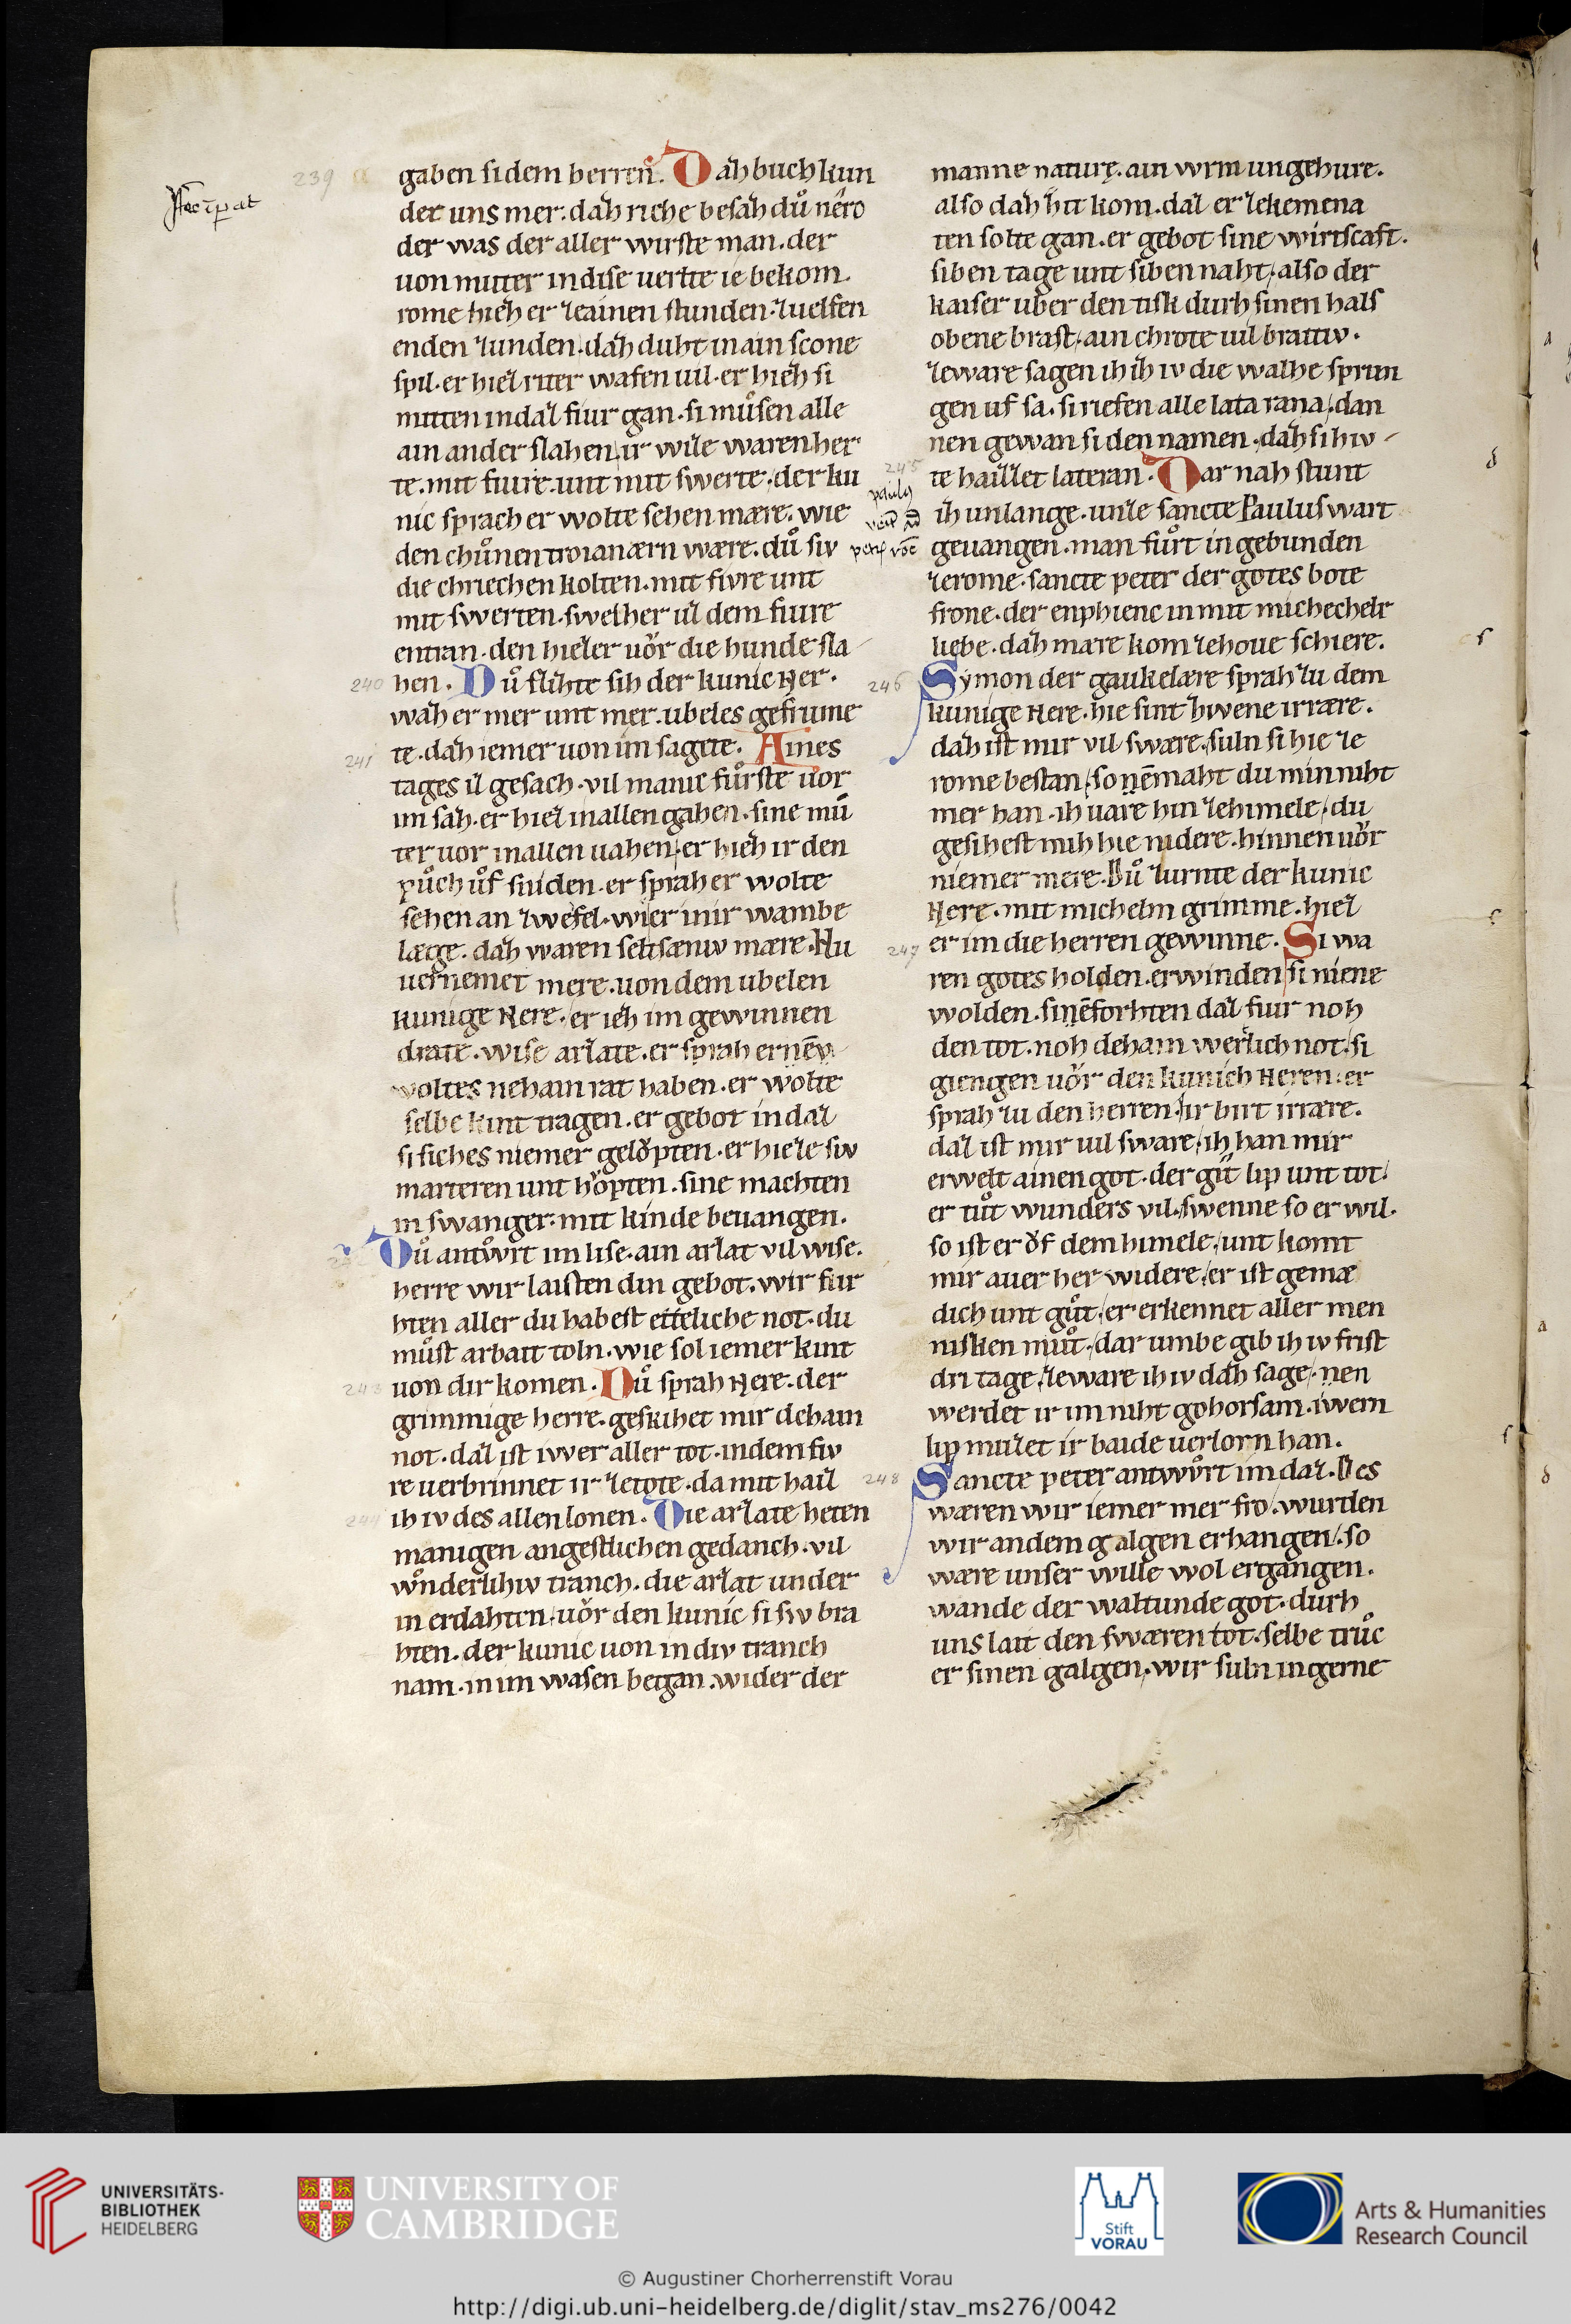 239
gaben si dem herren. Daz buch kun
det uns mer. daz riche besaz dů nêro
der was der aller wirste man. der
uon muter in dise uerlte ie bekom.
rome hiez er zeainen stunden. zuelfen
enden zunden. daz duht in ain scone
spil. er hiez riter wafen uil. er hiez si
mitten in daz fiur gan. si můsen alle
ain ander slahen. ir wile waren her
te. mit fiuire. unt mit swerte. der ku
nic sprach er wolte sehen mære. wie
den chůnen troianærn wære. dů siv
die chriechen kolten. mit fivre unt
mit swerten. swelher uz dem fiure
entran. den hiezer uor die hunde sla
240 hen. Dů flizte sih der kunic Ner.
waz er mer unt mer. ubeles gefrume
241 te. daz iemer uon im sagete. Aines
tages iz gesach. vil manic fůrste uor
im saz. er hiez in allen gahen. sine mů
ter uor in allen uahen. er hiez ir den
půch ůf sniden. er sprah er wolte
sehen an zwefel. wi er in ir wambe
læge. daz waren seltsæniv mære. Nu
uernemet mere. uon dem ubelen
kunige Nere. er iez im gewinnen
drate. wise arzate. er sprah er nēw
woltes nehain rat haben. er wolte
selbe kint tragen. er gebot in daz
si siches niemer gelopten. er hieze siv
marteren unt hŏpten. sine machten
in swanger. mit kinde beuangen.
Dů antwrt im lise. ain arzat vil wise.
herre wir laisten din gebot. wir fur
hten aller du habest etteliche not. du
můst arbait toln. wie sol iemer kint
243 uon dir komen. Dů sprah Nere. der
grimmige herre. geskihet mir dehain
not. daz ist iwer aller tot. in dem fiv
re uerbrinnet ir zetote. da mit hail
244 ih iv des allen lonen. Die arzate heten
manigen angestlichen gedanch. vil
wnderlihiv tranch. die arzat under
in erdahten. uor den kunic si siv bra
hten. der kunic uon in div tranch
nam. in im wasen began. wider der
manne nature. ain wrm ungehure.
also daz zit kom. daz er zekemena
ten solte gan. er gebot sine wirtscaft.
siben tage unt siben naht. also der
kaiser uber den tisk durh sinen hals
obene brast. ain chrote uil braitiv.
zeware sagen ih iv die walhe sprun
gen uf sa. si riefen alle lata rana. dan
nen gewan si den namen. daz si hiv
245 te haizzet lateran. Dar nah stunt
ih unlange. unze sancte Paulus wart
geuangen. man fůrt in gebunden
zerome. sancte peter der gotes bote
frone. der enphienc in mit michechelr
liebe. daz mare kom zehoue schiere.
246 Symon der gaukelære sprah zu dem
kunige Nere. hie sint zwene irrære.
daz ist mir vil swære. suln si hie ze
rome bestan. so nēmaht du min niht
mer han. ih uare hin zehimele. du
gesihest mih hie nidere. hinnen uor
niemer mere. Dů zurnte der kunic
Nere. mit michelm grimme. hiez
247 er im die herren gewinne. Si wa
ren gotes holden. erwinden si niene
wolden. sinēforhten daz fiur noh
den tot. noh deham werlich not. si
giengen uor den kunich Neren. er
sprah zu den herren. ir birt irrære.
daz ist mir uil sware. ih han mir
erwelt ainen got. der git lip unt tot.
er tůt wunders vil. swenne so er wil.
so ist er ŏf dem himele. unt komt
mir auer her widere. er ist genæ
dich unt gůt. er erkennet aller men
nisken můt. dar umbe gib ih iv frist
dri tage. zeware ih iv daz sage. nen
werdet ir im niht gohorsam. iwern
lip muzet ir baide uerlorn han.
248 Sancte peter antwrt im daz. Des
wæren wir iemer mer fro. wurden
wir an dem galgen erhangen. so
wære unser wille wol ergangen.
wande der waltunde got. durh
uns lait den swæren tot. selbe trůc
er sinen galgen. wir suln in gerne
UNIVERSITÄTS-
BIBLIOTHEK
HEIDELBERG
UNIVERSITY OF
CAMBRIDGE
Stift
VORAU
Arts & Humanities
Research Council
© Augustiner Chorherrenstift Vorau
http://digi.ub.uni-heidelberg.de/diglit/stav_ms276/0042